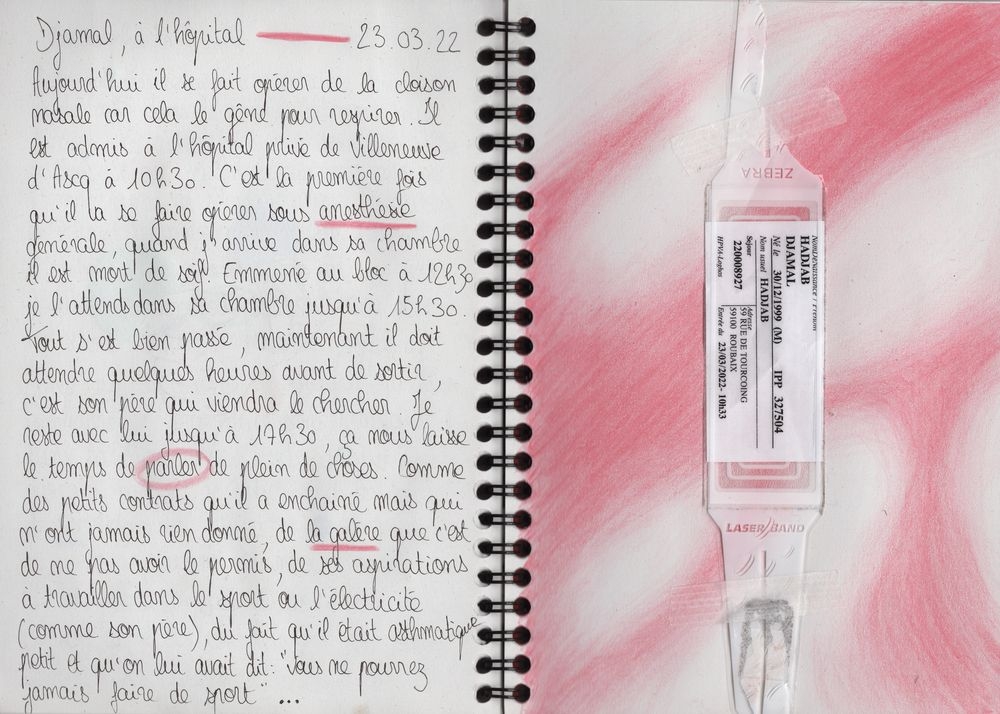 Djamal, à l'hôpital 23.03.22
Aujourd'hui il se fait opérer de la cloison
nasale car cela le gêne pour respirer. Il
est admis à l'hôpital privé de Villeneuve
d'Ascq à 10h30. C'est la première fois
qu'il va se faire opérer sous anesthésie
générale, quand j'arrive dans sa chambre
il est mort de soif! Emmené au bloc à 12h30
je l'attends dans sa chambre jusqu'à 15h30.
Tout s'est bien passé, maintenant il doit
attendre quelques heures avant de sortir,
c'est son père qui viendra le chercher. Je
reste avec lui jusqu'à 17h30, ça nous laisse
le temps de parler de plein de choses. Comme
des petits contrats qu'il a enchainé mais qui
n'ont jamais rien donné, de la galère que c'est
de ne pas avoir le permis, de ses aspirations
à travailler dans le sport ou l'électricité
(comme son père), du fait qu'il était asthmatique
petit et qu'on lui avait dit: "Vous ne pourrez
jamais faire de sport"...
ZEBRA
Nom naissance / Prénom
HADJAB
DJAMAL
Né le 30/12/1999 (M) IPP 327504
Nom usuel HADJAB
Séjour Adresse
220008927 59 RUE DE TOURCOING
59100 ROUBAIX
Entrée du 23/03/2022- 10h33
LASERBAND